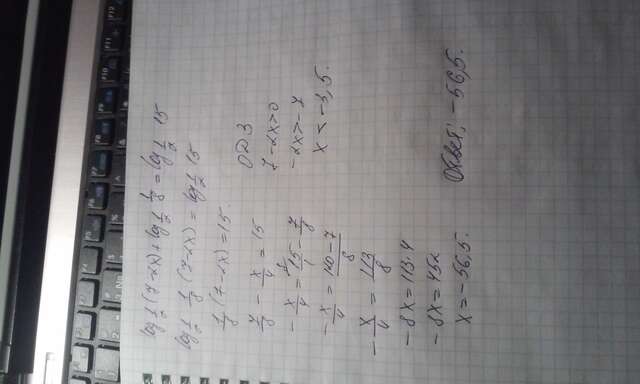 log 1/2 (7-2x) + log 1/2 1/8 = log 1/2 15
log 1/2 1/8 (7-2x) = log 1/2 15
1/8 (7-2x) = 15.
7/8 - x/4 = 15
- x/4 = 15/1 - 7/8
- x/4 = 120-7/8
- x/4 = 113/8
-8x = 113·4
-8x = 452
x = -56,5.
ОДЗ
7-2x>0
-2x>-7
x < -3,5.
Ответ: -56,5.